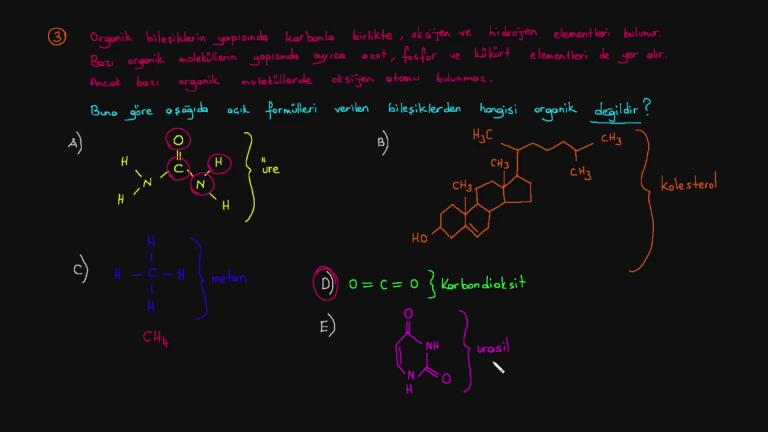 3 Organik bileşiklerin yapısında karbonla birlikte, oksijen ve hidrojen elementleri bulunur.
Bazı organik moleküllerin yapısında ayrıca azot, fosfor ve kükürt elementleri de yer alır.
Ancak bazı organik moleküllerde oksijen atomu bulunmaz.
Buna göre aşağıda açık formülleri verilen bileşiklerden hangisi organik değildir?
A)
O
H
C
H
N
N
H
H
üre
B)
H3C
CH3
CH3
CH3
CH3
HO
Kolesterol
C)
H
H — C — H
H
metan
CH4
D) O = C = O } Karbondioksit
E)
O
NH
N
H
O
urasil